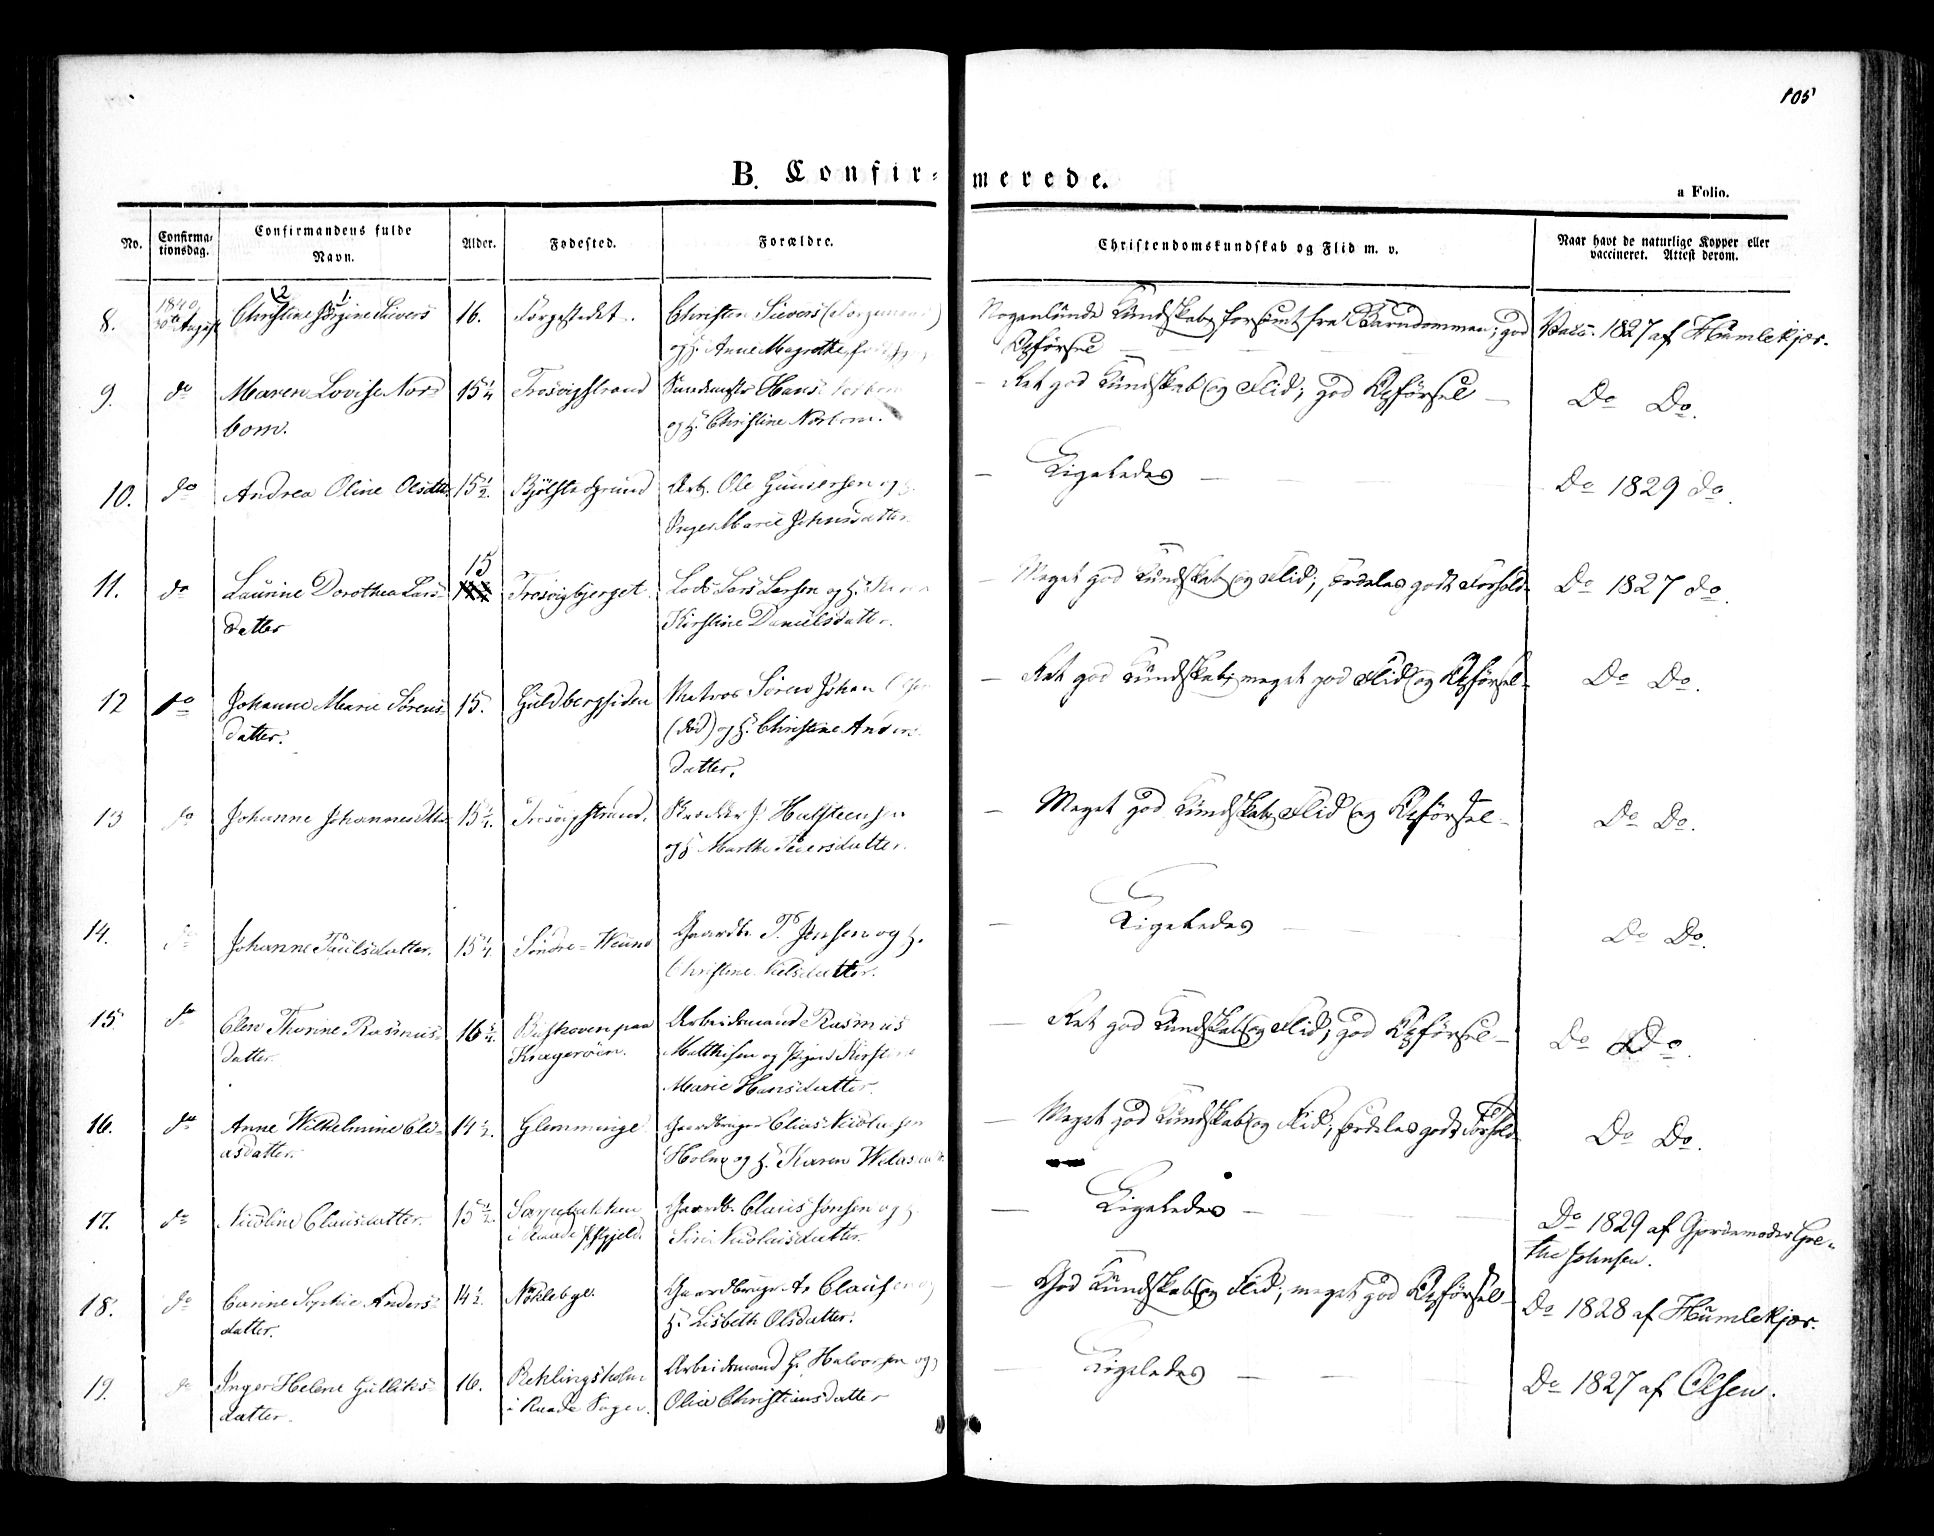 105
B. Confir=merede.
a Folio.
No. Confirma=tionsdag. Confirmandens fulde Navn. Alder. Fødested. Forældre. Christendomskundskab og Flid m. v. Naar havt de naturlige Kopper eller vaccineret. Attest derom.
8. 1840 30te August Christine Jørgine Sivers 16. Torgestedet. Christen Sivers
og H. Anne Magrethe
Nogenlunde Kundskab, forsømt fra Barndommen; god
Opførsel
Vacc. 1827 af Humlekjær.
9. do Maren Lovise Nor=
bom. 15 1/4 Trosvigstrand Hans
og H. Christine Norbom.
Ret god Kundskab og Flid; god Opførsel
Do Do.
10. do Andrea Oline Olsdtter 15 1/2. Arb. Ole Gundersen og H.
Inger Marie Johnsdatter.
Ligeledes
Do 1829 do.
11. do Laurine Dorothea Lars=
datter 15 Trosvigbjerget. Lods Lars Larsen og H.
Kirstine Danielsdatter.
Meget god Kundskab og Flid; særdeles godt Forhold.
Do 1827 do.
12 do Johanne Marie Sørens=
datter. 15. Guldbergsiden Matros Søren Johan
(død) og H. Christine Anders
datter.
Ret god Kundskab; meget god Flid og Opførsel.
Do Do.
13 do Johanne Johannesdtter 15 1/4. Trosvigstrand. J. Halfteensen
og H. Marthe Peiersdatter.
Meget god Kundskab, Flid og Opførsel
Do Do.
14. do Johanne Paulsdatter. 15 1/4. Søndre= Gaardbr. P. Jensen og H.
Christine Nielsdatter.
Ligeledes
Do Do.
15 do Elen Thorine Rasmus=
datter. 16 paa
Kragerøen. Arbeidsmand Rasmus
Matthisen og Pigen Kirstine
Marie Hansdatter.
Ret god Kundskab og Flid; god Opførsel
Do Do.
16. do Anne Wilhelmine Eli=
asdatter. 14 1/2. Glemminge Gaardbruger Elias Nicolaisen
Holm og H. Karen
Meget god Kundskab og Flid; særdeles godt Forhold
Do Do.
17. do Nicoline Clausdatter. 15 1/2. Gaardb. Claus Jønsen og H.
Siri Nicolaisdatter.
Ligeledes
Do 1829 af Gjordemoder Gre=
the Johnsen.
18. do Carine Sophie Anders=
datter. 14 1/2. Nøkleby. Gaardbruger A. Clausen og
H. Lisbeth Olsdatter.
God Kundskab og Flid; meget god Opførsel
Do 1828 af Humlekjær.
19. do Inger Helene Gulliks=
datter. 16. i Raade Arbeidsmand G. Halvorsen og
Olia Christiansdatter
Ligeledes
Do 1827 af Olsen.